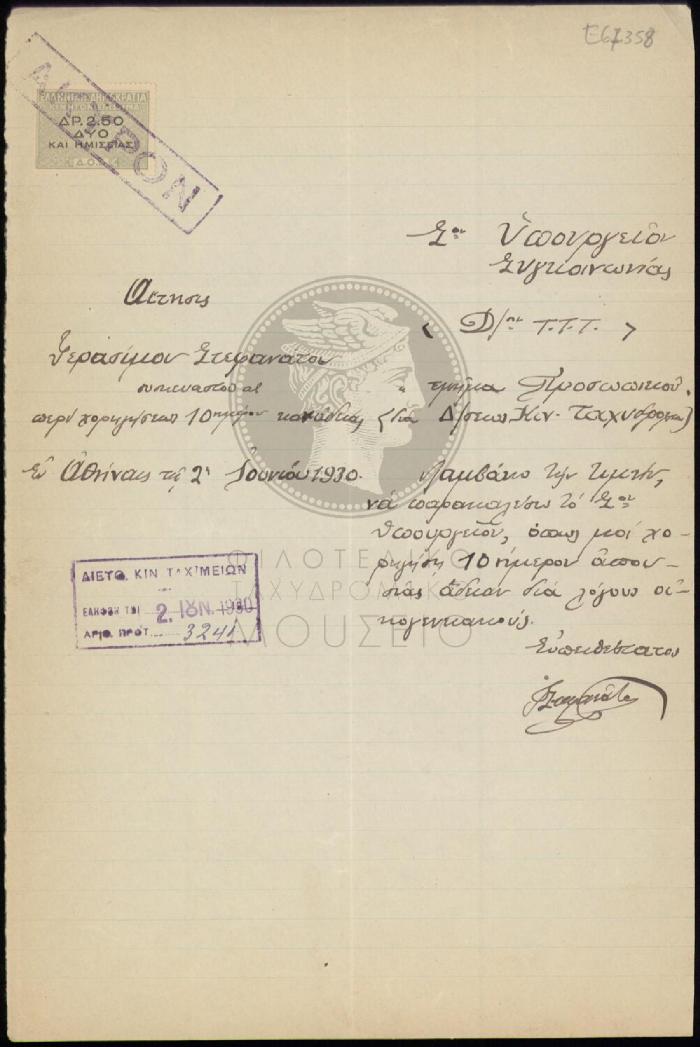 E67358
ΑΚΥΡΟΝ
ΕΛΛΗΝΙΚΗ ΔΗΜΟΚΡΑΤΙΑ
ΔΡ. 2.50
ΔΥΟ
ΚΑΙ ΗΜΙΣΕΙΑΣ
Δ.Ο.Σ
Σον Ὑπουργεῖον
Συγκοινωνίας
Αἴτησις
< Δ/σιν Τ.Τ.Τ. >
Γερασίμου Στεφανάτου
συσκευαστοῦ
" τμῆμα Προσωπικοῦ.
περί χορηγήσεως 10ημέρου κανον. ἀδείας
(διά Δ/σεως Κιν. Ταχυδρομείων)
Ἐν Ἀθήναις τῇ 2ᾳ Ἰουνίου 1930.
Λαμβάνω τήν τιμήν,
νά παρακαλέσω τό Σον
Ὑπουργεῖον, ὅπως μοί χο-
ρηγήσῃ 10 ήμερον ἀπου-
σίας ἄδειαν διά λόγους οἰ-
κογενειακούς.
Εὐπειθέστατος
ΔΙΕΥΘ. ΚΙΝ ΤΑΧ/ΜΕΙΩΝ
ΕΛΗΦΘΗ ΤΗΙ 2. ΙΟΥΝ. 1930
ΑΡΙΘ. ΠΡΩΤ. 3241
ΦΙΛΟΤΕΛΙΚΟ
ΤΑΧΥΔΡΟΜΙΚΟ
ΜΟΥΣΕΙΟ